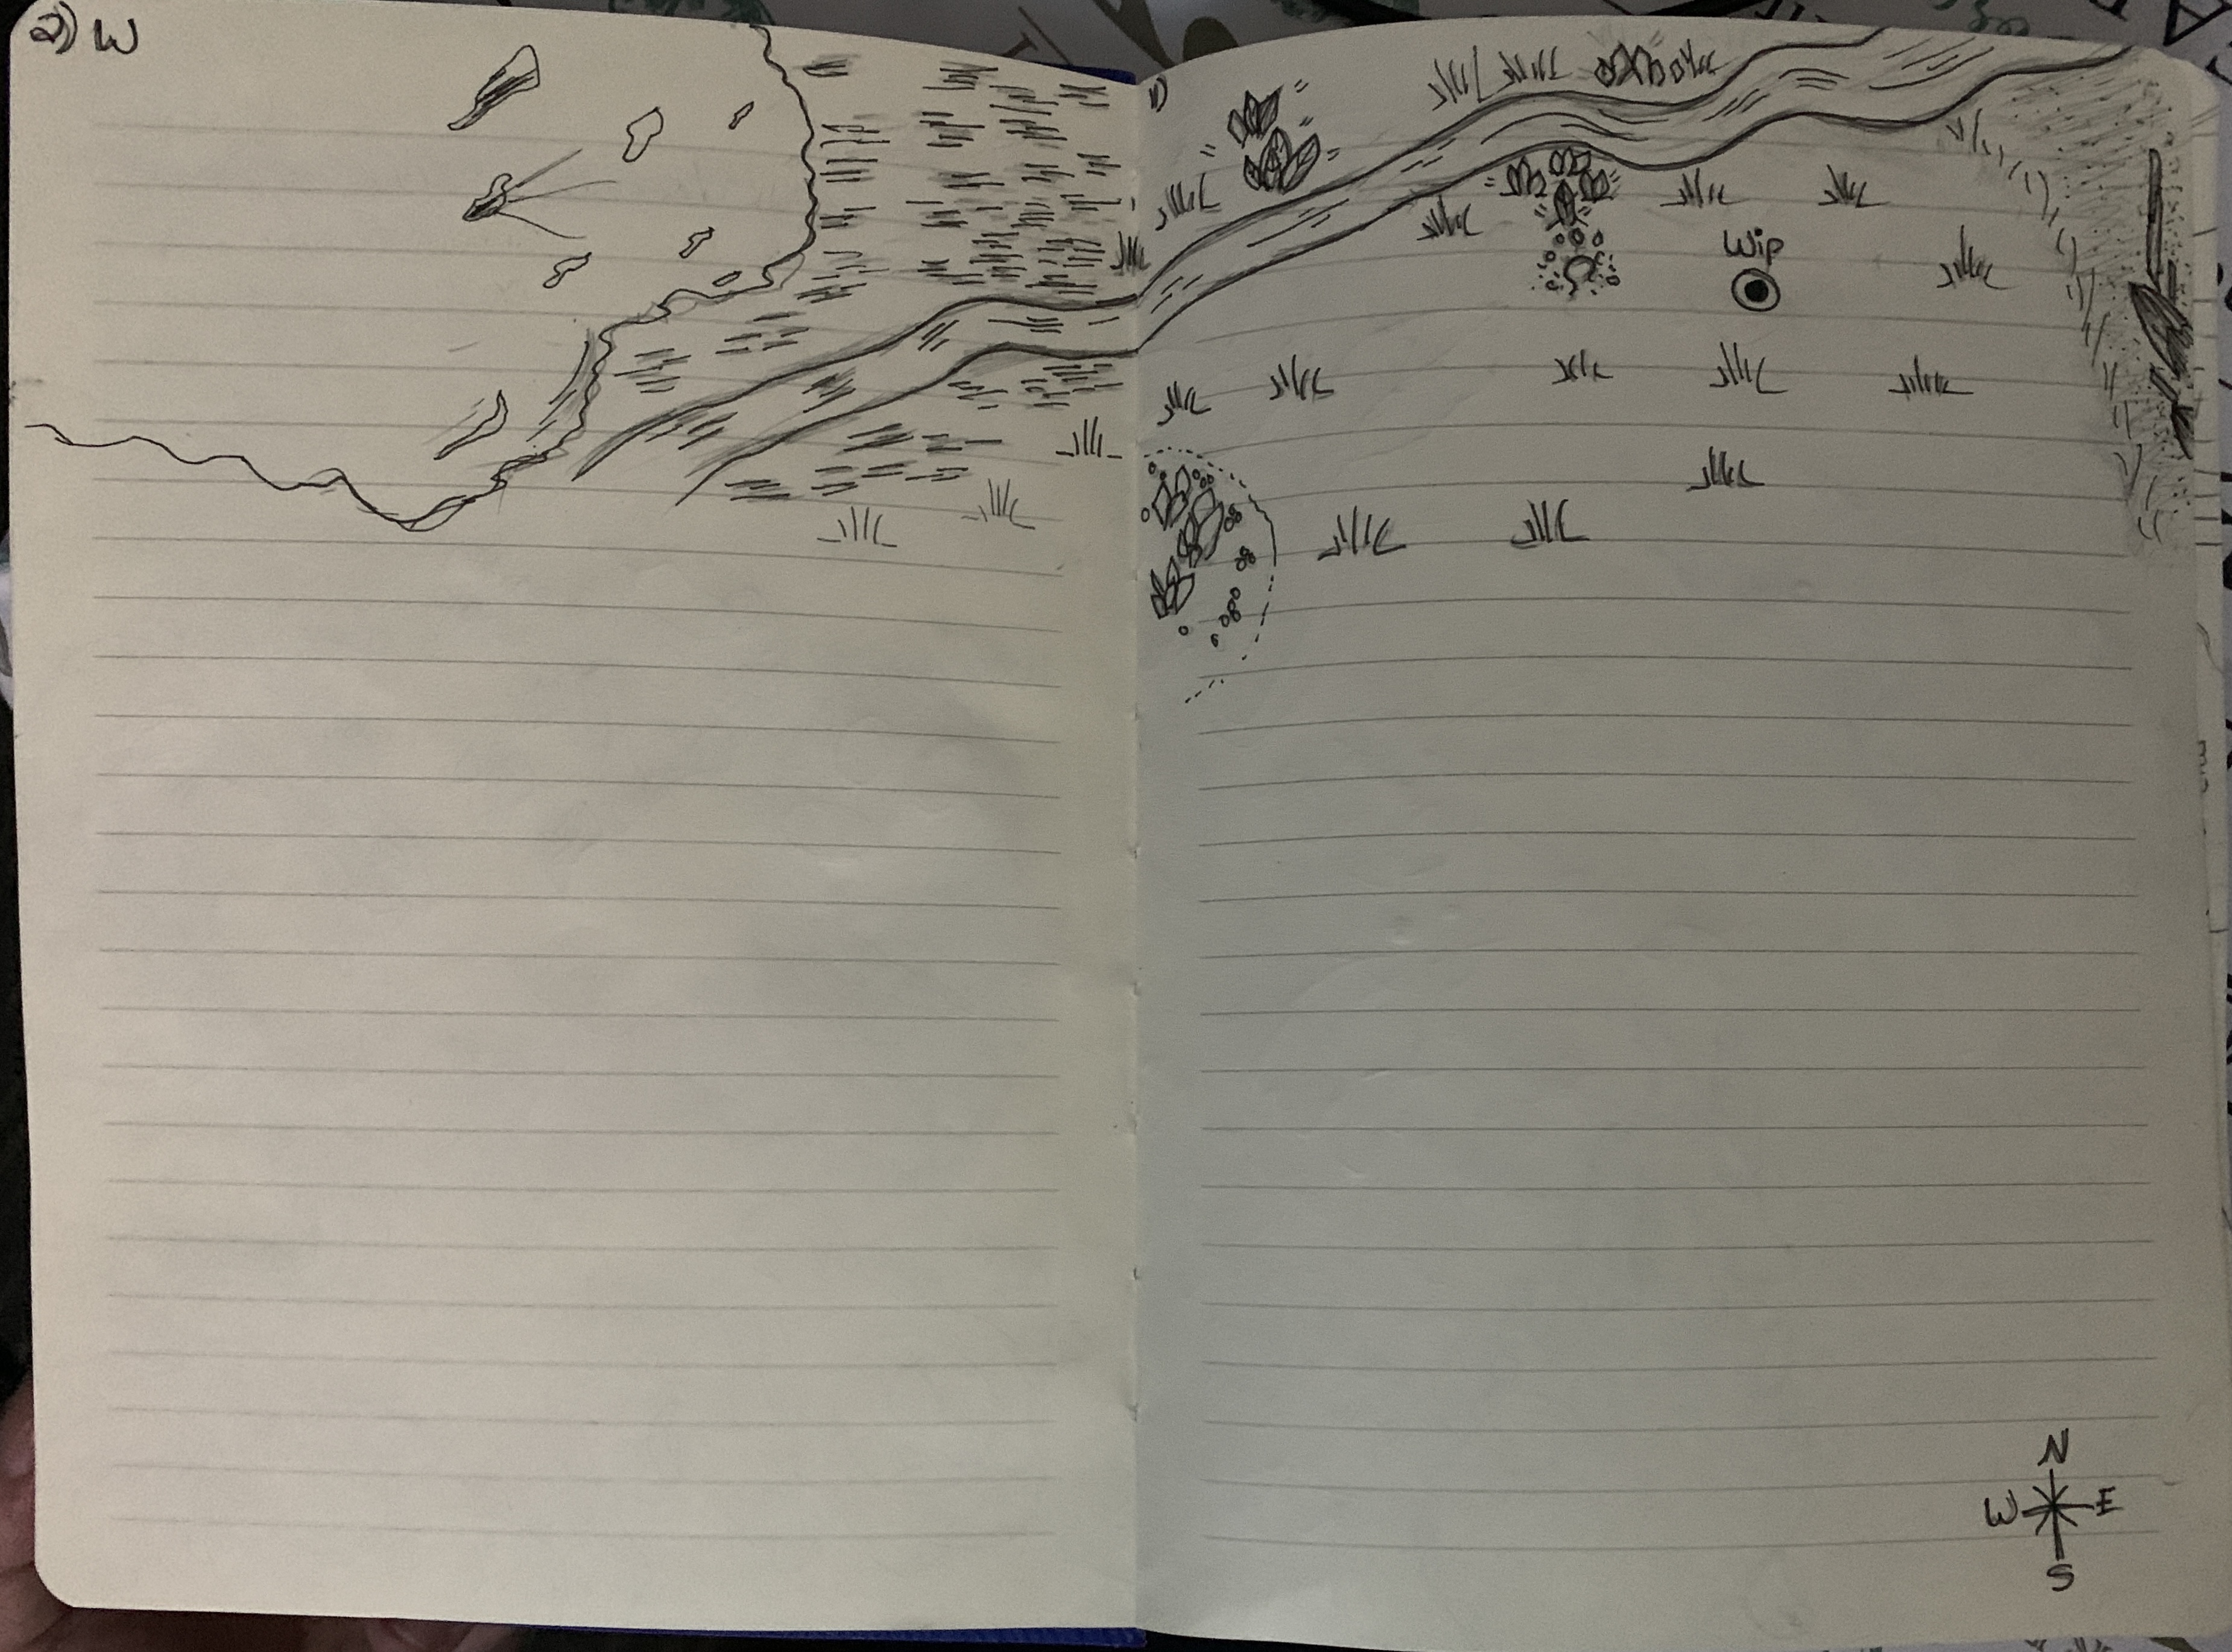 2) W
1)
Wip
N
W E
S